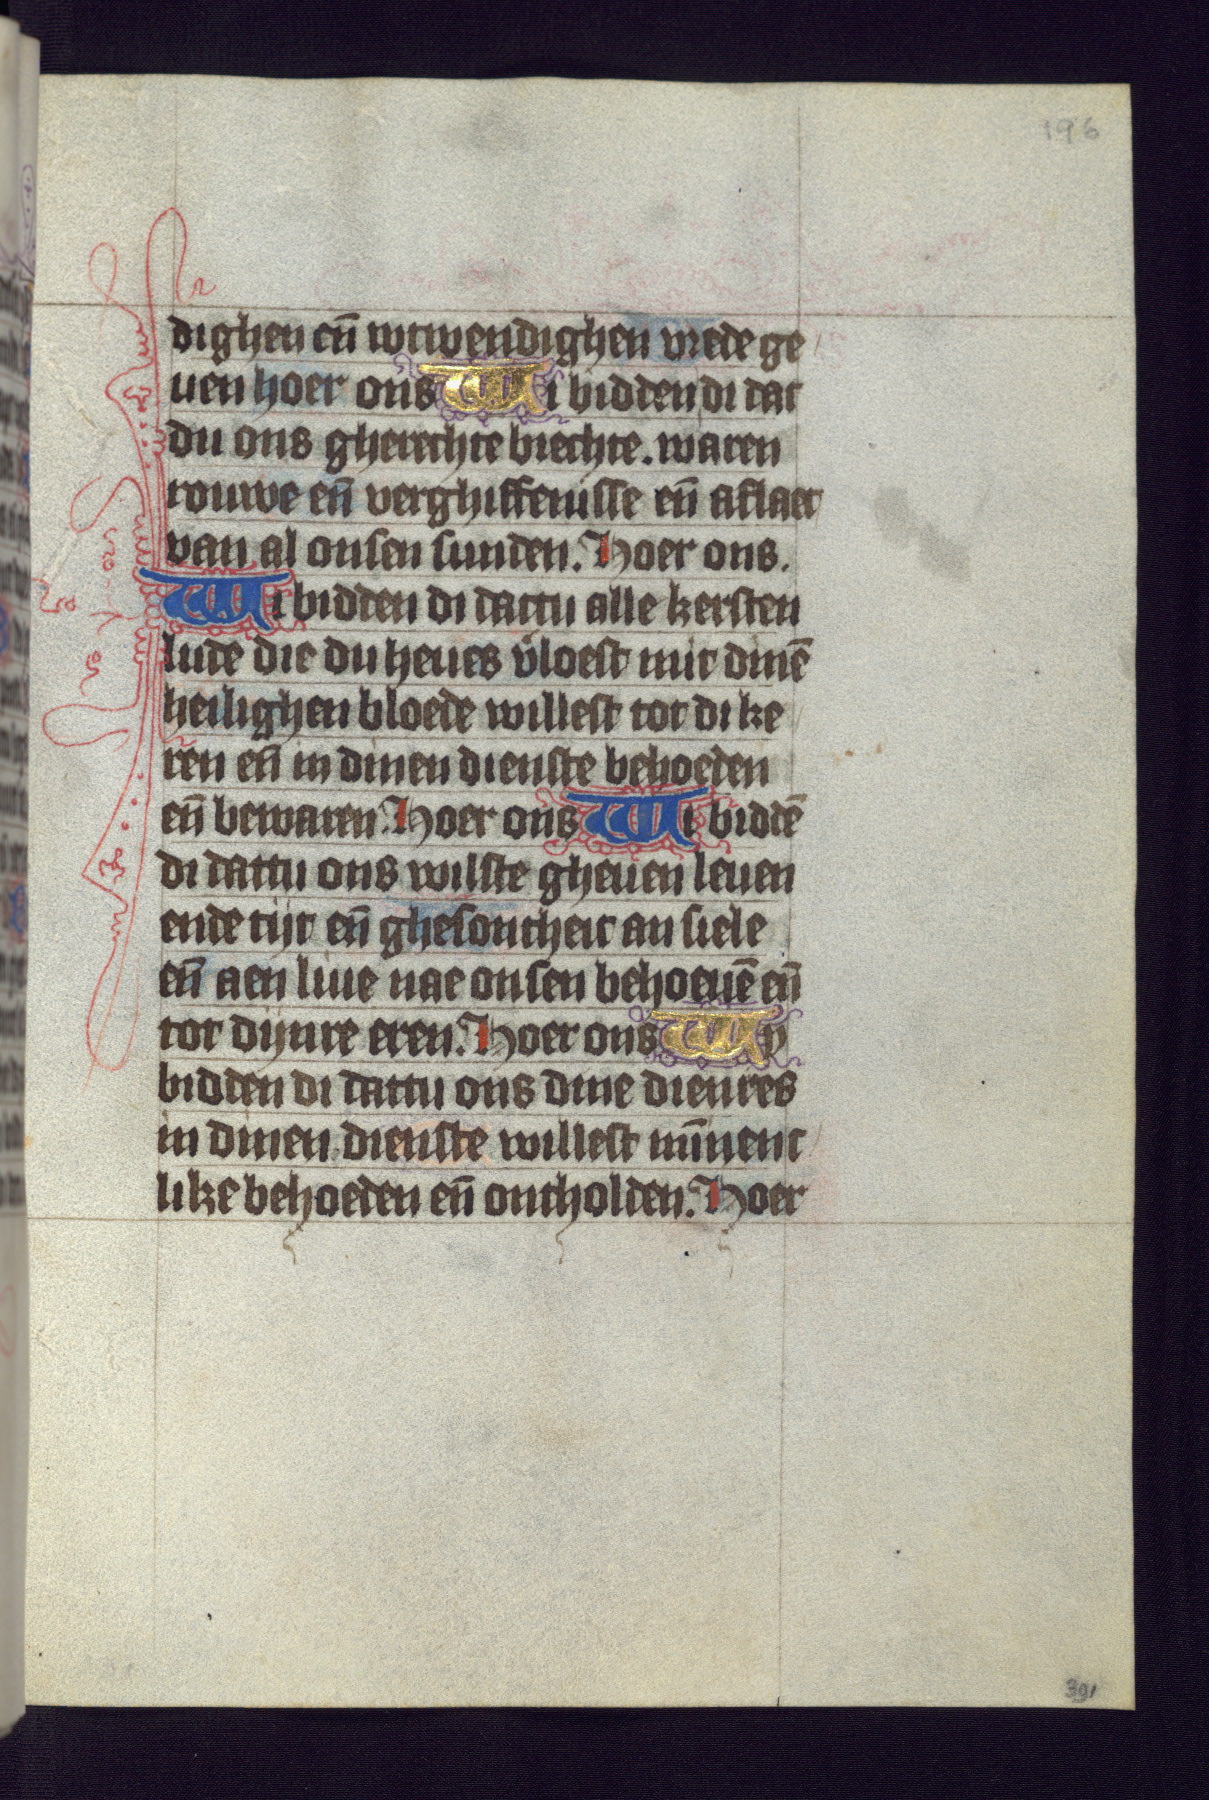 196
dighen en̄ wtwendighen vrede ge
uen hoer ons Wi bidden di dat
du ons gherechte biechte. waren
rouwe en̄ verghiffenisse en̄ aflaet
van al onsen sunden. Hoer ons.
Wi bidden di dattu alle kersten
lude die du heues v̄loest mit dinē
heilighen bloede willest tot di ke
ren en̄ in dinen dienste behoeden
en̄ bewaren. Hoer ons Wi biddē
di dattu ons wilste gheuen leuen
ende tijt en̄ ghesontheit an siele
en̄ aen liue nae onsen behoeuē en̄
tot dijnre eren. Hoer ons Wy
bidden di dattu ons dine dienres
in dinen dienste willest īnnent
like behoeden en̄ ontholden. Hoer
391